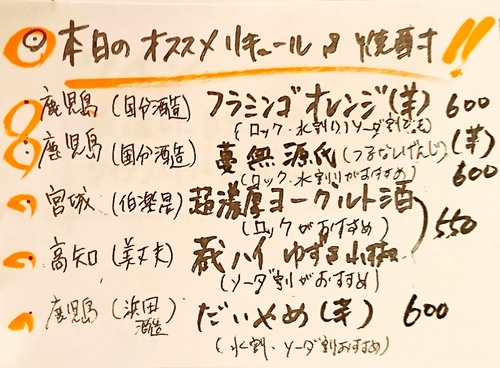 本日のオススメリキュール&焼酎!!
鹿児島(国分酒造)フラミンゴオレンジ(芋)600
(ロック・水割り)ソーダ割でも
鹿児島(国分酒造)蔓無源氏(つるなしげんじ)(芋)600
(ロック・水割りがおすすめ)
宮城(伯楽星)超濃厚ヨーグルト酒
(ロックがおすすめ)
高知(美丈夫)蔵ハイゆず山椒 550
(ソーダ割がおすすめ)
鹿児島(浜田酒造)だいやめ(芋)600
(水割・ソーダ割おすすめ)